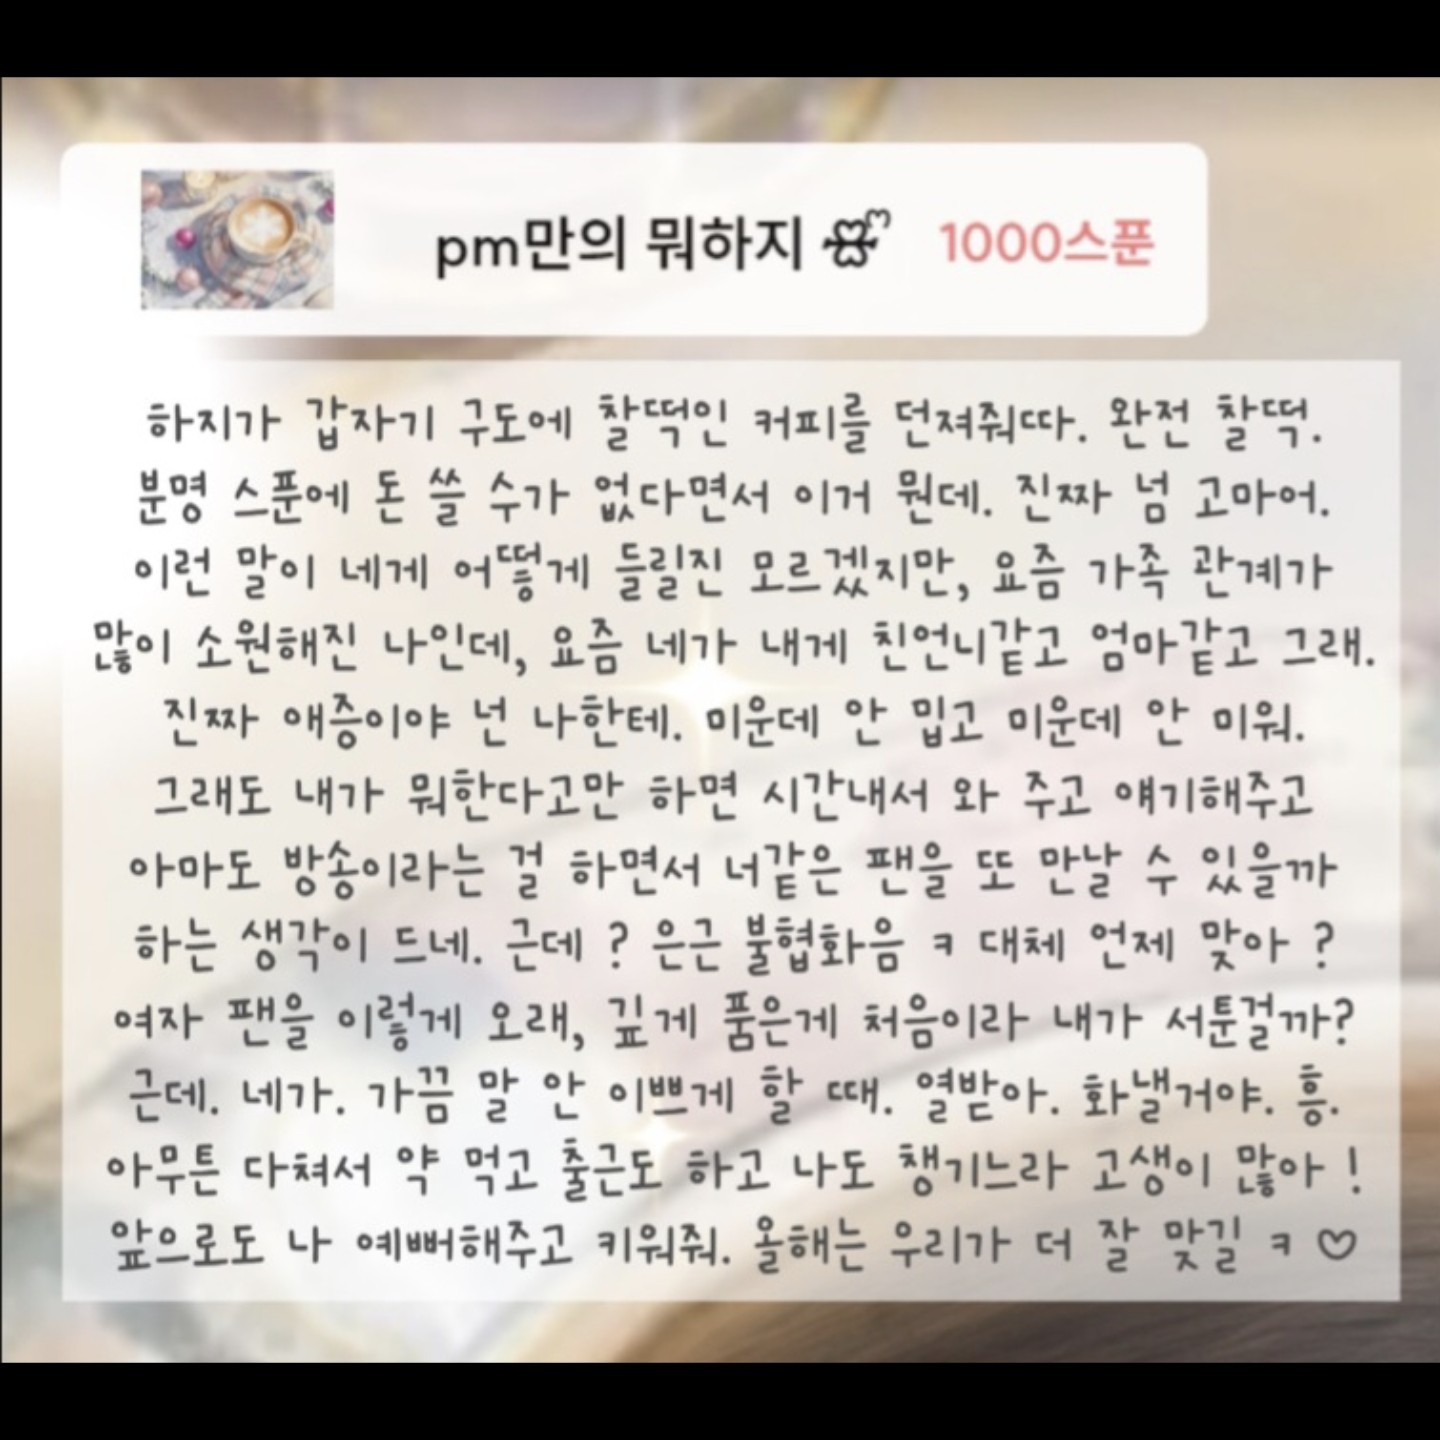 pm만의 뭐하지 1000스푼
하지가 갑자기 구도에 찰떡인 커피를 던져줘따. 완전 찰떡.
분명 스푼에 돈 쓸 수가 없다면서 이거 뭔데. 진짜 넘 고마어.
이런 말이 네게 어떻게 들릴진 모르겠지만, 요즘 가족 관계가
많이 소원해진 나인데, 요즘 네가 내게 친언니같고 엄마같고 그래.
진짜 애증이야 넌 나한테. 미운데 안 밉고 미운데 안 미워.
그래도 내가 뭐한다고만 하면 시간내서 와 주고 얘기해주고
아마도 방송이라는 걸 하면서 너같은 팬을 또 만날 수 있을까
하는 생각이 드네. 근데 ? 은근 불협화음 ㅋ 대체 언제 맞아 ?
여자 팬을 이렇게 오래, 깊게 품은게 처음이라 내가 서툰걸까?
근데. 네가. 가끔 말 안 이쁘게 할 때. 열받아. 화낼거야. 흥.
아무튼 다쳐서 약 먹고 출근도 하고 나도 챙기느라 고생이 많아 !
앞으로도 나 예뻐해주고 키워줘. 올해는 우리가 더 잘 맞길 ㅋ ♡